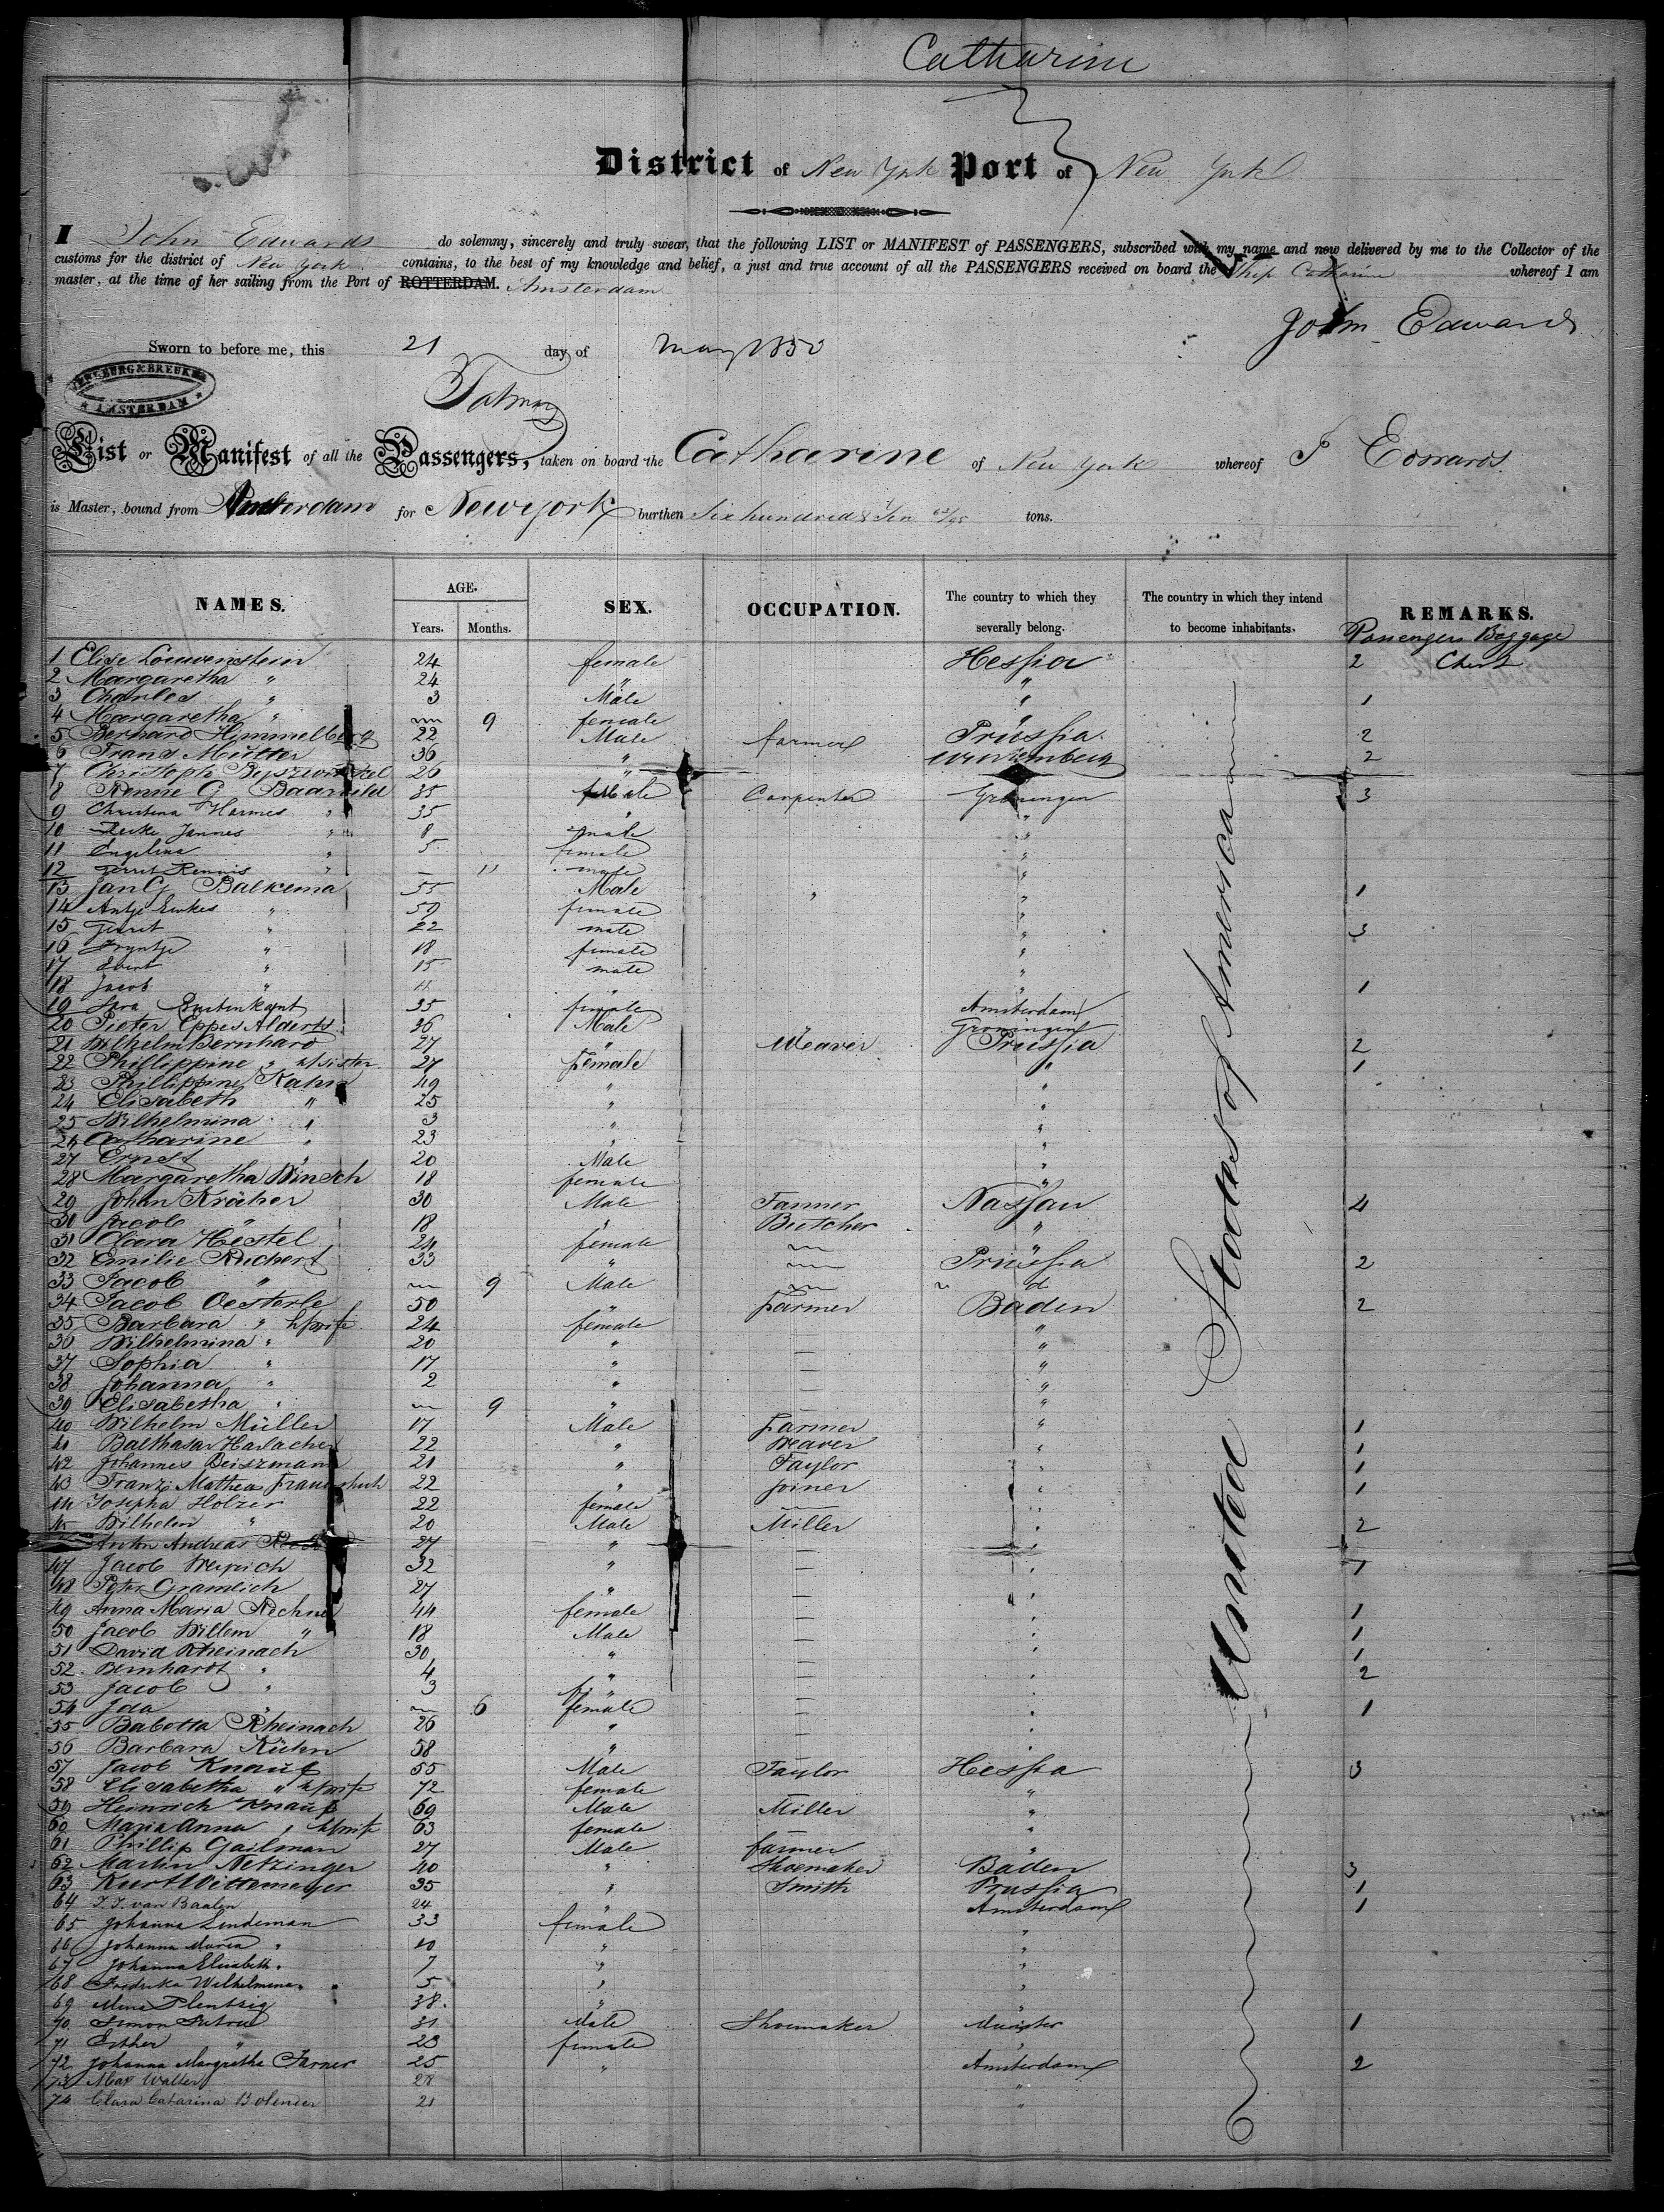 Catharine
District of New York Port of New York
I John Edwards do solemny, sincerely and truly swear, that the following LIST or MANIFEST of PASSENGERS, subscribed with my name and now delivered by me to the Collector of the
customs for the district of New York contains, to the best of my knowledge and belief, a just and true account of all the PASSENGERS received on board the Ship Catharine whereof I am
master, at the time of her sailing from the Port of ROTTERDAM. Amsterdam
John Edwards
Sworn to before me, this 21 day of May 1850
AMSTERDAM
List or Manifest of all the Passengers, taken on board the Catharine of New York whereof J Edwards
is Master, bound from Amsterdam for New york burthen Six hundred & Ten tons.
NAMES. AGE. SEX. OCCUPATION. The country to which they severally belong. The country in which they intend to become inhabitants. REMARKS.
Years. Months. Passengers Baggage
United States of America
1 Elise Loewenstein 24 female Hessia 2 Chest
2 Margaretha " 24 " "
3 Charles " 3 Male " 1
4 Margaretha " 9 female "
5 Bernhard Himmelberg 22 Male farmer Prussia 2
6 Franz 36 " Wurtemberg 2
7 Christoph 26 "
8 Renne G Baarveld 35 Male Carpenter Groningen 3
9 Christina Harmes " 35 "
10 Jannes " 8 male "
11 Engelina " 5 female "
12 Gerrit Rennis " 11 male "
13 Jan G Balkema 55 Male " " 1
14 Antje " 50 female "
15 Gerrit " 22 male " 3
16 Tryntje " 18 female "
17 Evert " 15 male "
18 Jacob " 11 " " 1
19 35 female Amsterdam
20 Pieter Eppes Alderts 36 Male Groningen
21 Wilhelm Bernhard 27 " Weaver Prussia 2
22 Phillippine " h/sister 27 Female " 1
23 Phillippine Kahn 49 " "
24 Elisabeth " 25 " "
25 Wilhelmina " 3 " "
26 Catharine " 23 " "
27 Ernst " 20 Male "
28 Margaretha Winsch 18 female "
29 Johan Krächer 30 Male Farmer Nassau 4
30 Jacob " 18 " Butcher "
31 Clara Hestel 24 female "
32 Emilie Ruchert 33 " Prussia 2
33 Jacob " 9 Male d
34 Jacob Oesterle 50 " Farmer Baden 2
35 Barbara " h/wife 24 female "
36 Wilhelmina " 20 " "
37 Sophia " 17 " — "
38 Johanna " 2 " — "
39 Elisabetha " 9 " — "
40 Wilhelm Müller 17 Male Farmer " 1
41 Balthasar Harlacher 22 " Weaver " 1
42 Johannes Beiszmann 21 " Taylor " 1
43 Franz Mathea 22 " Joiner " 1
44 Josepha Holzer 22 female — "
45 Wilhelm " 20 Male Miller " 2
Anton Andreas 27 " — "
47 Jacob Weyrich 32 " — " 1
48 Peter Gramlich 27 " — "
49 Anna Maria Rechner 44 female — " 1
50 Jacob Willem " 18 Male — " 1
51 David Rheinach 30 " — " 1
52 Bernhardt " 4 " — " 2
53 Jacob " 3 " — "
54 Ida " 6 female — " 1
55 Babetta Rheinach 26 " — "
56 Barbara Kühn 58 " — "
57 Jacob Knauf 55 Male Taylor Hessia 3
58 Elisabetha " h/wife 72 female — "
59 Heinrich Knauf 69 Male Miller "
60 Maria Anna " h/wife 63 female "
61 Phillip Gailman 27 Male farmer "
62 Martin Netzinger 40 " Shoemaker Baden 3
63 Kurt Wittemeyer 35 " Smith Prussia 1
64 J. J. van Baalen 24 " Amsterdam 1
65 Johanna Lindeman 33 female "
66 Johanna Maria " 10 " "
67 Johanna Elisabeth " 7 " "
68 Fredrika Wilhelmina " 5 " "
69 Mina Plentzig 38 " "
70 Simon 31 Male Shoemaker Munster 1
71 Esther " 23 female "
72 Johanna Margretha Farner 25 " Amsterdam 2
73 Max Walter 28 "
74 Clara Catarina Bolender 21 "